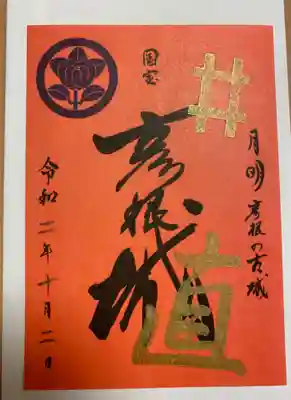 井
月明 彦根の古城
国宝
彦根城
直
令和二年十月二日